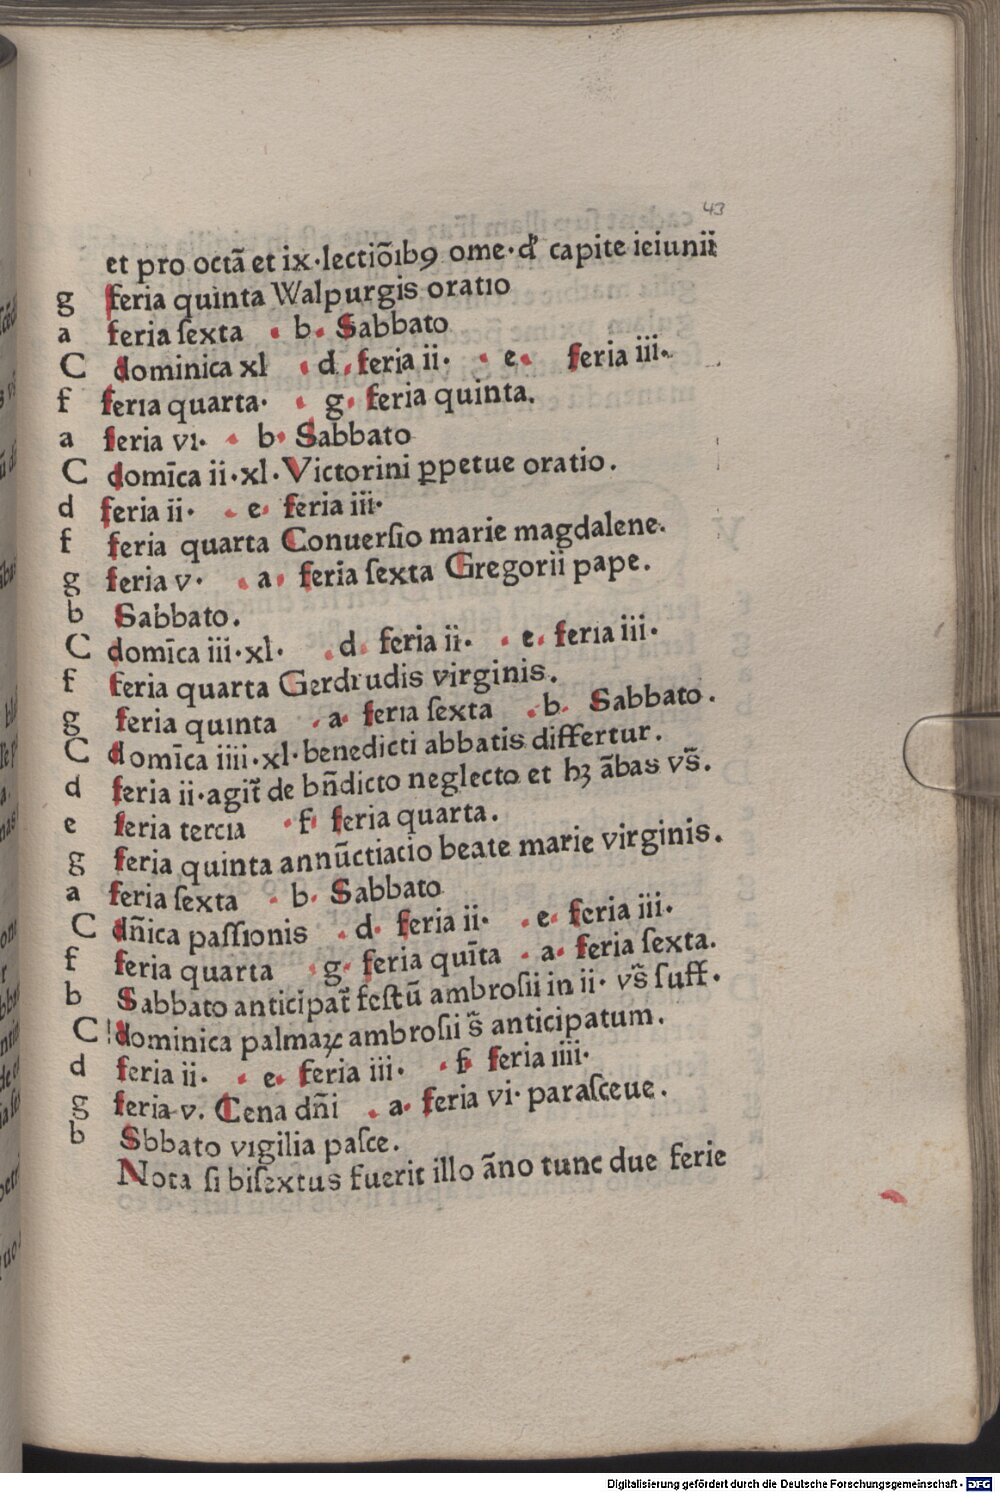 43
et pro octā et ix·lectiōıbꝯ ome·đ capite ieiunii
g feria quinta Walpurgis oratıo
a feria ſexta · b· Sabbato
C dominica xl · d· feria ii· · e· feria iii·
f ferıa quarta· · g· feria quinta.
a feria vı· · b· Sabbato
C domīca ii·xl·Victorini ꝑpetue oratio.
d feria ii· · e· feria iii·
f feria quarta Conuerſio marie magdalene.
g feria v· · a· feria ſexta Gregorii pape.
b Sabbato.
C domīca iii·xl· · d· feria ii· · e· ferıa iii·
f feria quarta Gerdrudis virginis.
g feria quınta · a· ferıa ſexta · b· Sabbato.
C domīca iiii·xl·benedicti abbatis differtur.
d feria ii·agit̄ de bn̄dicto neglecto et hꝫ ābas vs̄.
e feria tercıa · f· feria quarta.
g feria quinta annūctiatio beate marie virginis.
a feria ſexta · b· Sabbato
C dn̄ica paſſıonis · d· feria ii· · e· feria iii·
f feria quarta · g· feria quīta · a· feria ſexta.
b Sabbato anticipat̄ feſtū ambroſii in ii· vs̄ ſuff·
C dominica palmaꝝ ambroſii s̄ anticipatum.
d feria ii· · e· feria iii· · f· feria iiii·
g feria v. Cena dn̄i · a· feria vi·paraſceue.
b Sbbato vıgilia paſce.
Nota ſi biſextus fuerit illo āno tunc due ferie
Digitalisierung gefördert durch die Deutsche Forschungsgemeinschaft - DFG